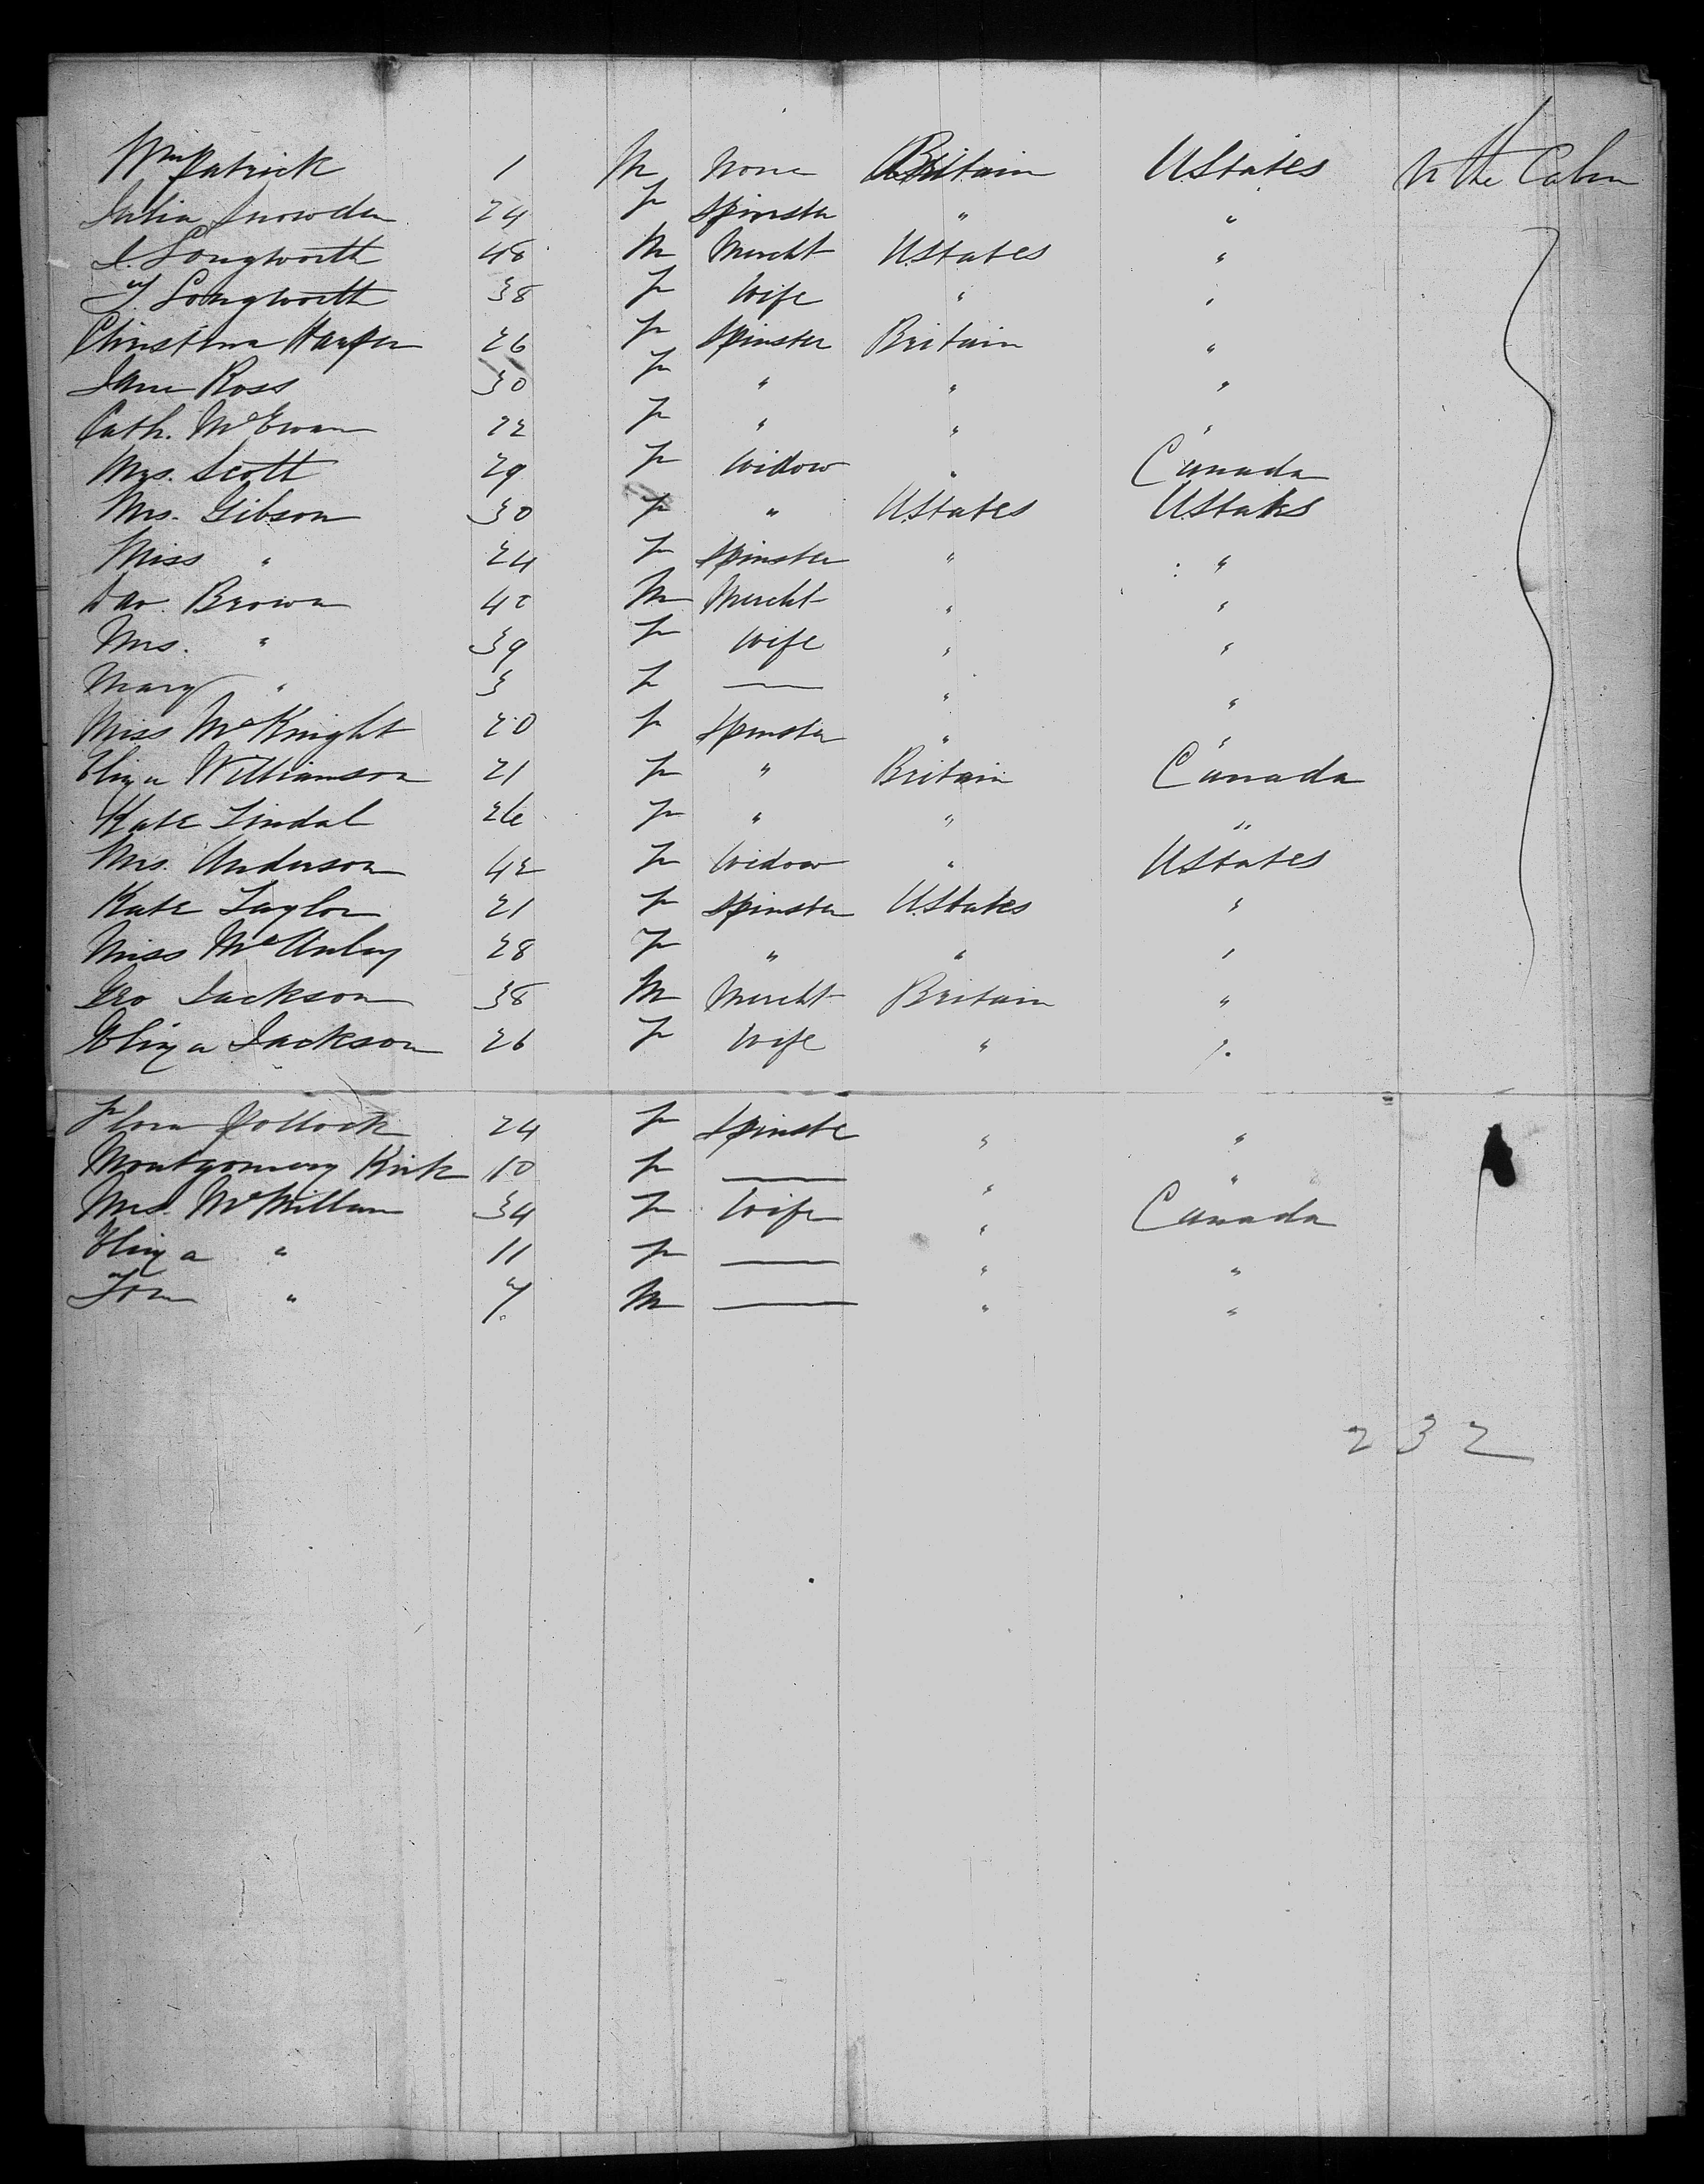 Wm Patrick 1 M None Britain UStates In the Cabin
Julia Snowden 24 F Spinster " "
J. Longworth 48 M Mercht UStates "
T. Longworth 38 F Wife " "
Christina Harper 26 F Spinster Britain "
Jane Ross 30 F " " "
Cath. McEwan 22 F " " "
Mrs. Scott 29 F Widow " Canada
Mrs. Gibson 30 F " UStates UStates
Miss " 24 F Spinster " "
Dav. Brown 42 M Mercht " "
Mrs. " 39 F Wife " "
Mary " 3 F — " "
Miss McKnight 20 F Spinster " "
Eliza Williamson 21 F " Britain Canada
Kate Tindal 26 F " " "
Mrs. Anderson 42 F Widow " UStates
Kate Taylor 21 F Spinster UStates "
Miss McAulay 28 F " " "
Geo Jackson 38 M Mercht Britain "
Eliza Jackson 26 F Wife " "
Flora Pollock 24 F Spinste " "
Montgomery Kirk 10 F — " "
Mrs. McMillan 34 F Wife " Canada
Eliza " 11 F — " "
Tom " 7. M — " "
232